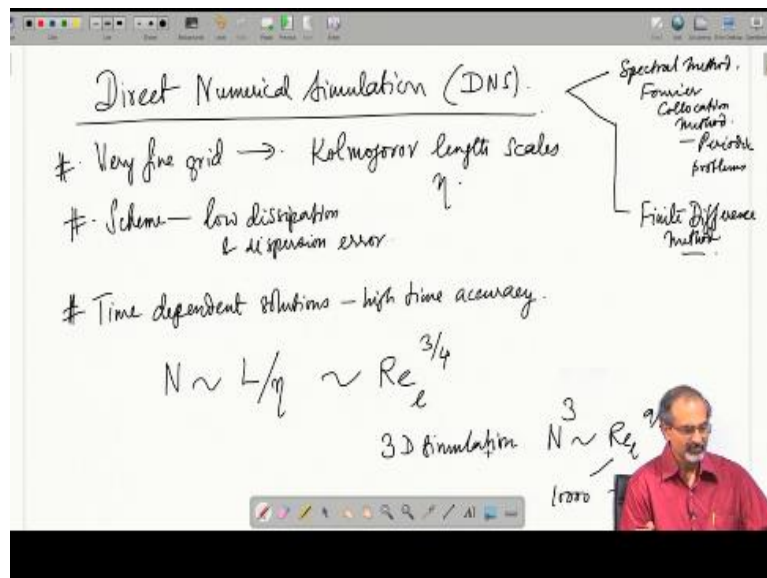 Direct Numerical Simulation (DNS).
Spectral Method.
Fourier
Collocation
Method.
- Periodic
problems
Finite Difference
Method
#. Very fine grid → Kolmogorov length scales
η.
#. Scheme - low dissipation
& dispersion error.
# Time dependent solutions - high time accuracy.
N ~ L/η ~ Re_l^{3/4}
3D simulation N^3 ~ Re_l^{9/
10000